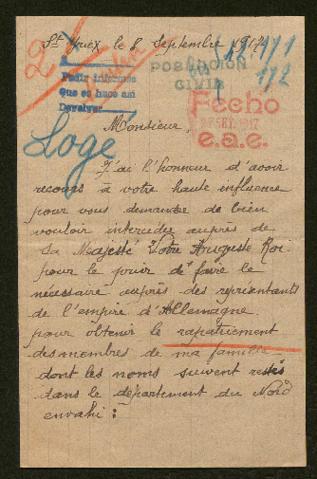 le 8 Septembre 1917
171
172
POBLACION
CIVIL
Pedir informes
que se hace así
Devolver
Fecho
SET. 1917
e.a.e.
Loge
Monsieur,
J'ai l'honneur d'avoir
recours à votre haute influence
pour vous demander de bien
vouloir intercéder auprès de
Sa Majesté Votre Auguste Roi
pour le prier de faire le
nécessaire auprès des représentants
de l'empire d'Allemagne
pour obtenir le rapatriement
des membres de ma famille
dont les noms suivent restés
dans le département du Nord
envahi :